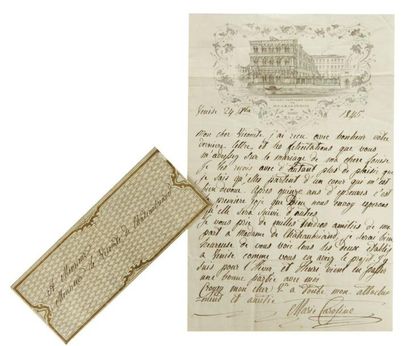 Venise 24 1845
Mon cher Vicomte j'ai reçu avec bonheur votre
dernière lettre et les félicitations que vous
m'adressez sur le mariage de ma chère Louise
Je les reçois avec d'autant plus de plaisir que
je sais qu'elle partent d'un cœur qui m'est
bien dévoué. Après quinze ans d'épreuves c'est
la première joie que Dieu nous envoye espérons
qu'elle sera suivie d'autres.
Je vous prie de mille tendres amitiés de ma
part à Madame de Châteaubriand, je serai bien
heureuse de vous voir tous les deux établis
à Venise comme vous en aviez le projet. J'y
suis pour l'hiver, et Henri vient en passer
une bonne partie avec moi
Croyez mon cher à toute mon attache
ment et amitié
Marie Caroline
A Monsieur
Monsieur le Vicomte de Châteaubriand